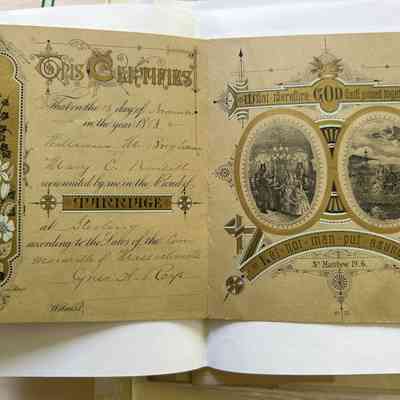 This Certifies
That on the 13 day of
in the year 1883
William M.
Mary C.
were united by me in the Bonds of
MARRIAGE
at Sterling
according to the Laws of the Com
monwealth of Massachusetts
Witness
What therefore GOD hath joined toge
Let not man put asun
St Matthew 19. 6.